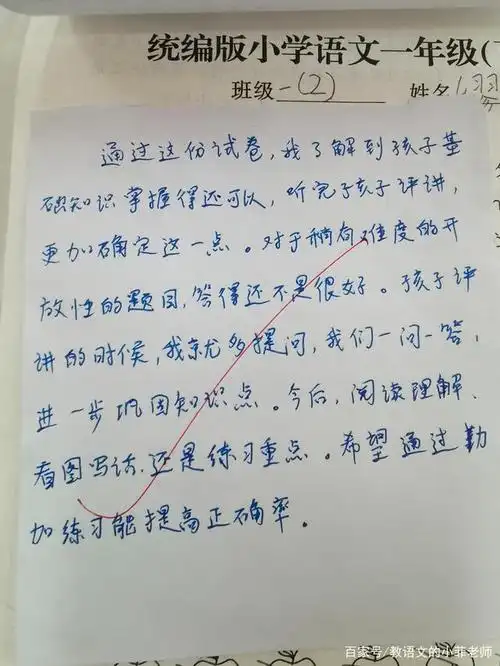 统编版小学语文一年级(
班级一(2) 姓名
通过这份试卷，我了解到孩子基
础知识掌握得还可以，听完了孩子评讲，
更加确定这一点。对于稍有难度的开
放性的题目，答得还不是很好。孩子评
讲的时候，我就多提问，我们一问一答，
进一步巩固知识点。今后，阅读理解、
看图写话，还是练习重点。希望通过勤
加练习能提高正确率。
百家号/教语文的小菲老师